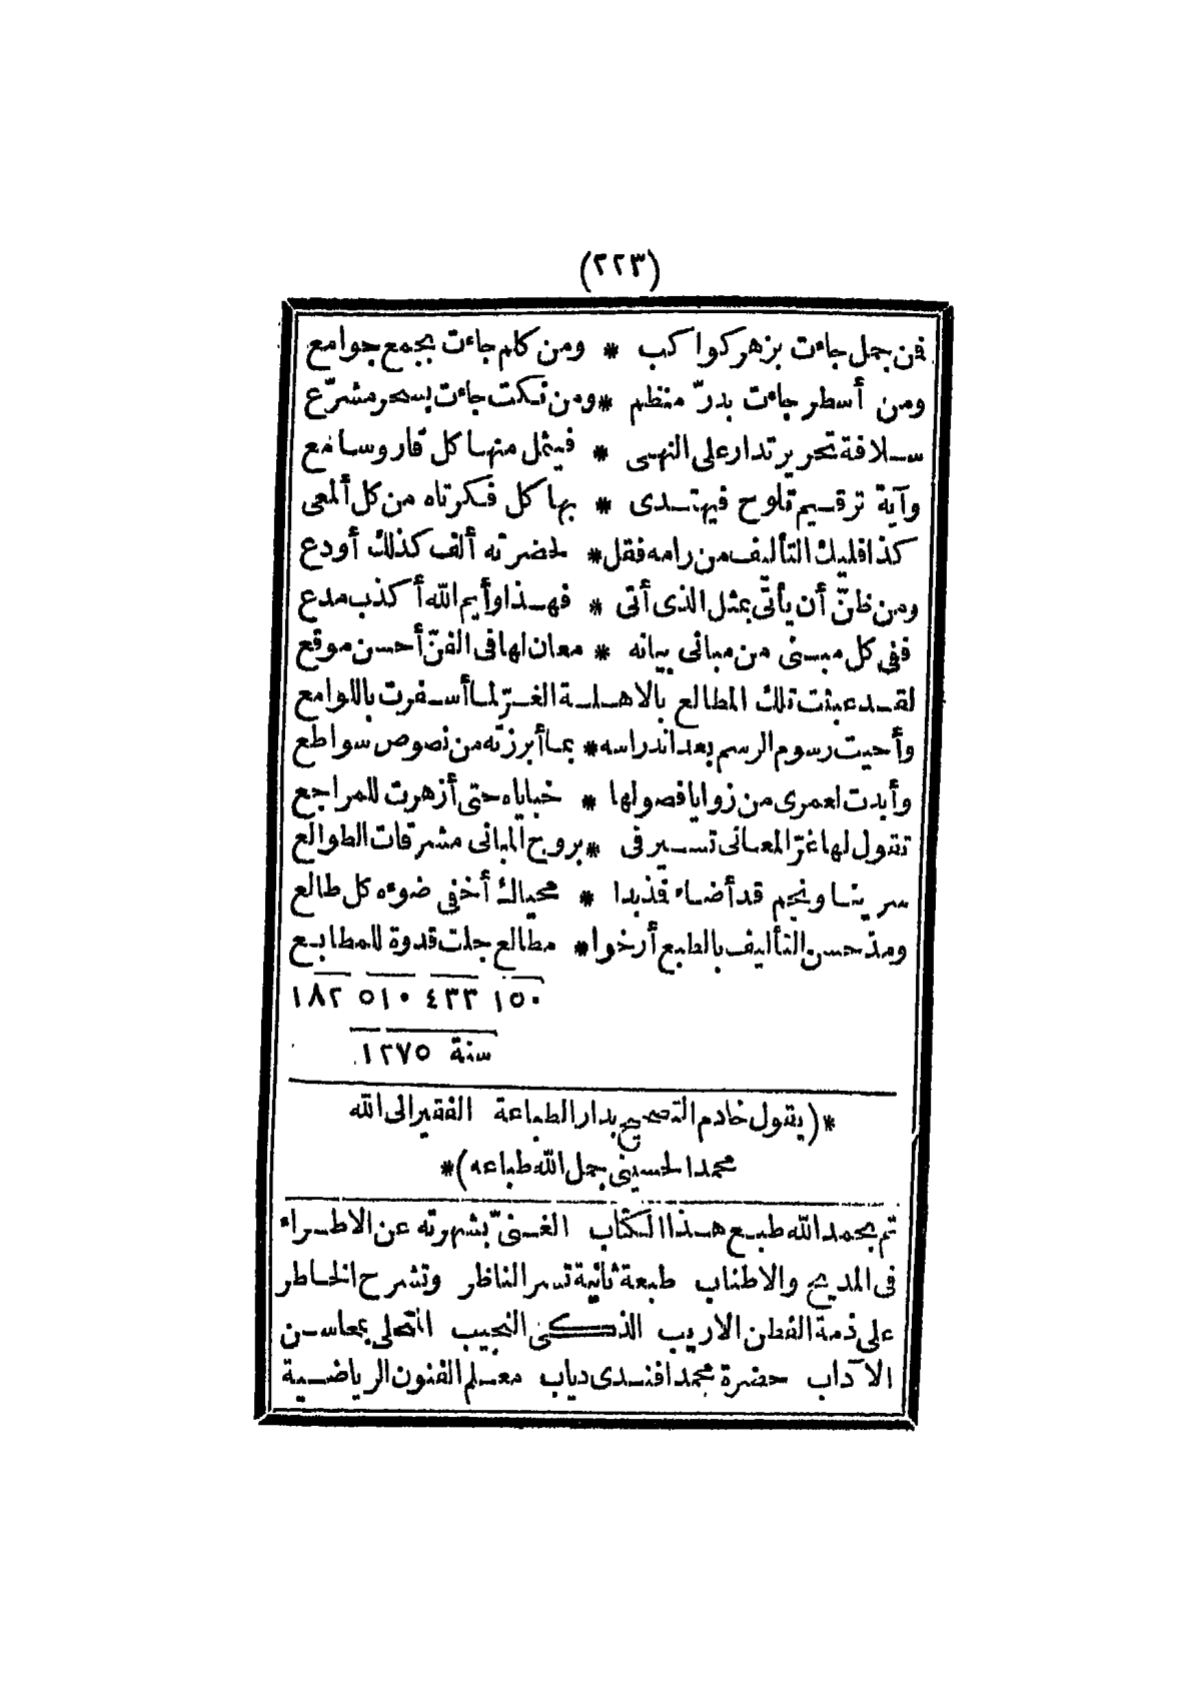 (٢٢٣)
فمن جمل جاءت بزهر كواكب * ومن كلم جاءت بجمع جوامع
ومن أسطر جاءت بدرّ منظم * ومن نكت جاءت بسحر مشرّع
سلافة تحرير تدار على النهى * فيثمل منها كل قار وسامع
وآية ترقيم تلوح فيهتدى * بها كل فكر تاه من كل ألمعى
كذا فليك التأليف من رامه فقل * لحضرته ألف كذلك أودع
ومن ظنّ أن يأتّى بمثل الذى أتى * فهذا وأيم الله أكذب مدع
ففى كل مبنى من مبانى بيانه * معان لها فى الفنّ أحسن موقع
لقد عبثت تلك المطالع بالاهلة الغرّ لما أسفرت باللوامع
وأحيت رسوم الرسم بعد اندراسه * بما أبرزته من نصوص سواطع
وأبدت لعمرى من زوايا فصولها * خباياه حتى أزهرت للمراجع
تقول لها غرّ المعانى تسير فى * بروج المبانى مشرقات الطوالع
سرينا ونجم قد أضاء فمذ بدا * محياك أخفى ضوءه كل طالع
ومذ حسن التأليف بالطبع أرخوا * مطالع جلت قدوة للمطابع
١٥٠ ٤٣٣ ٥١٠ ١٨٢
سنة ١٢٧٥
*(يقول خادم التصحيح بدار الطباعة الفقير الى الله
محمد الحسينى جمل الله طباعه)*
تم بحمد الله طبع هذا الكتاب الغنىّ بشهرته عن الاطراء
فى المديح والاطناب طبعة ثانية تسر الناظر وتشرح الخاطر
على ذمة الفطن الاريب الذكى النجيب المتحلى بمحاسن
الآداب حضرة محمد افندى دياب معلم الفنون الرياضية